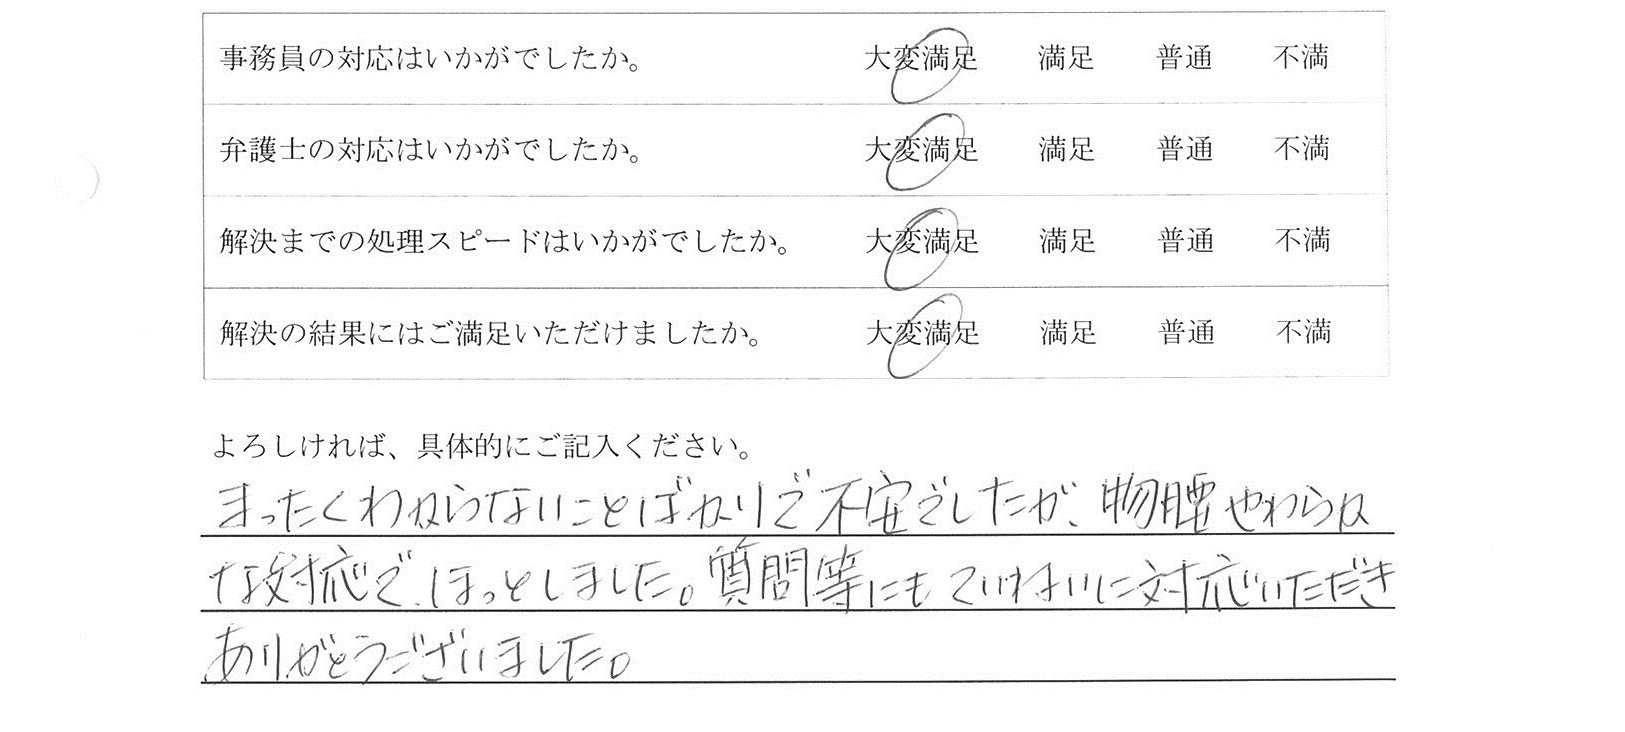 事務員の対応はいかがでしたか。 大変満足 満足 普通 不満
弁護士の対応はいかがでしたか。 大変満足 満足 普通 不満
解決までの処理スピードはいかがでしたか。 大変満足 満足 普通 不満
解決の結果にはご満足いただけましたか。 大変満足 満足 普通 不満
よろしければ、具体的にご記入ください。
まったくわからないことばかりで不安でしたが、物腰やわらか
な対応で、ほっとしました。質問等にもていねいに対応いただき
ありがとうございました。